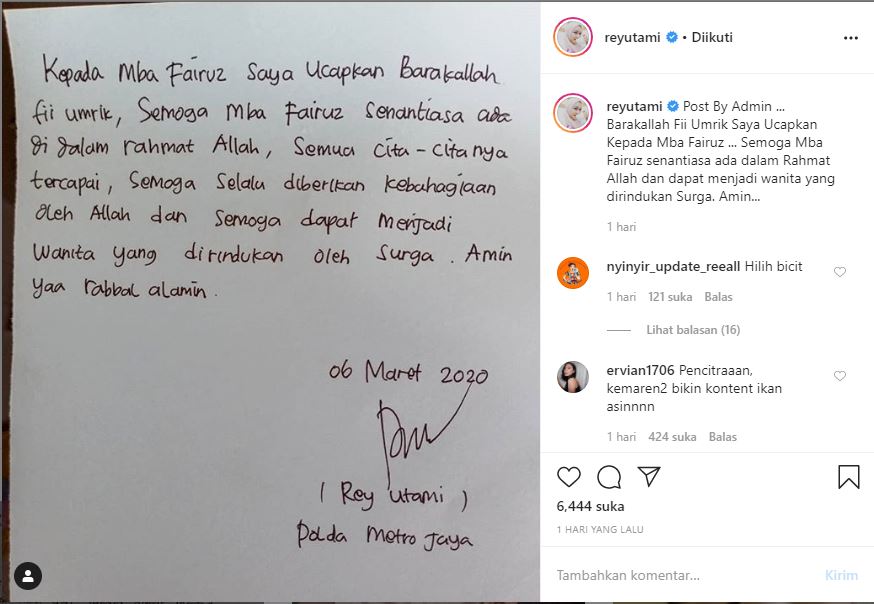 Kepada Mba Fairuz Saya Ucapkan Barakallah
fii umrik, Semoga Mba Fairuz senantiasa ada
di dalam rahmat Allah, Semua Cita-citanya
tercapai, Semoga Selalu diberikan kebahagiaan
Oleh Allah dan Semoga dapat Menjadi
Wanita yang dirindukan Oleh Surga. Amin
yaa rabbal alamin.
06 Maret 2020
( Rey Utami )
Polda Metro Jaya
reyutami • Diikuti
reyutami Post By Admin ...
Barakallah Fii Umrik Saya Ucapkan
Kepada Mba Fairuz ... Semoga Mba
Fairuz senantiasa ada dalam Rahmat
Allah dan dapat menjadi wanita yang
dirindukan Surga. Amin...
1 hari
nyinyir_update_reeall Hilih bicit
1 hari 121 suka Balas
Lihat balasan (16)
ervian1706 Pencitraaan,
kemaren2 bikin kontent ikan
asinnnn
1 hari 424 suka Balas
6,444 suka
1 HARI YANG LALU
Tambahkan komentar... Kirim